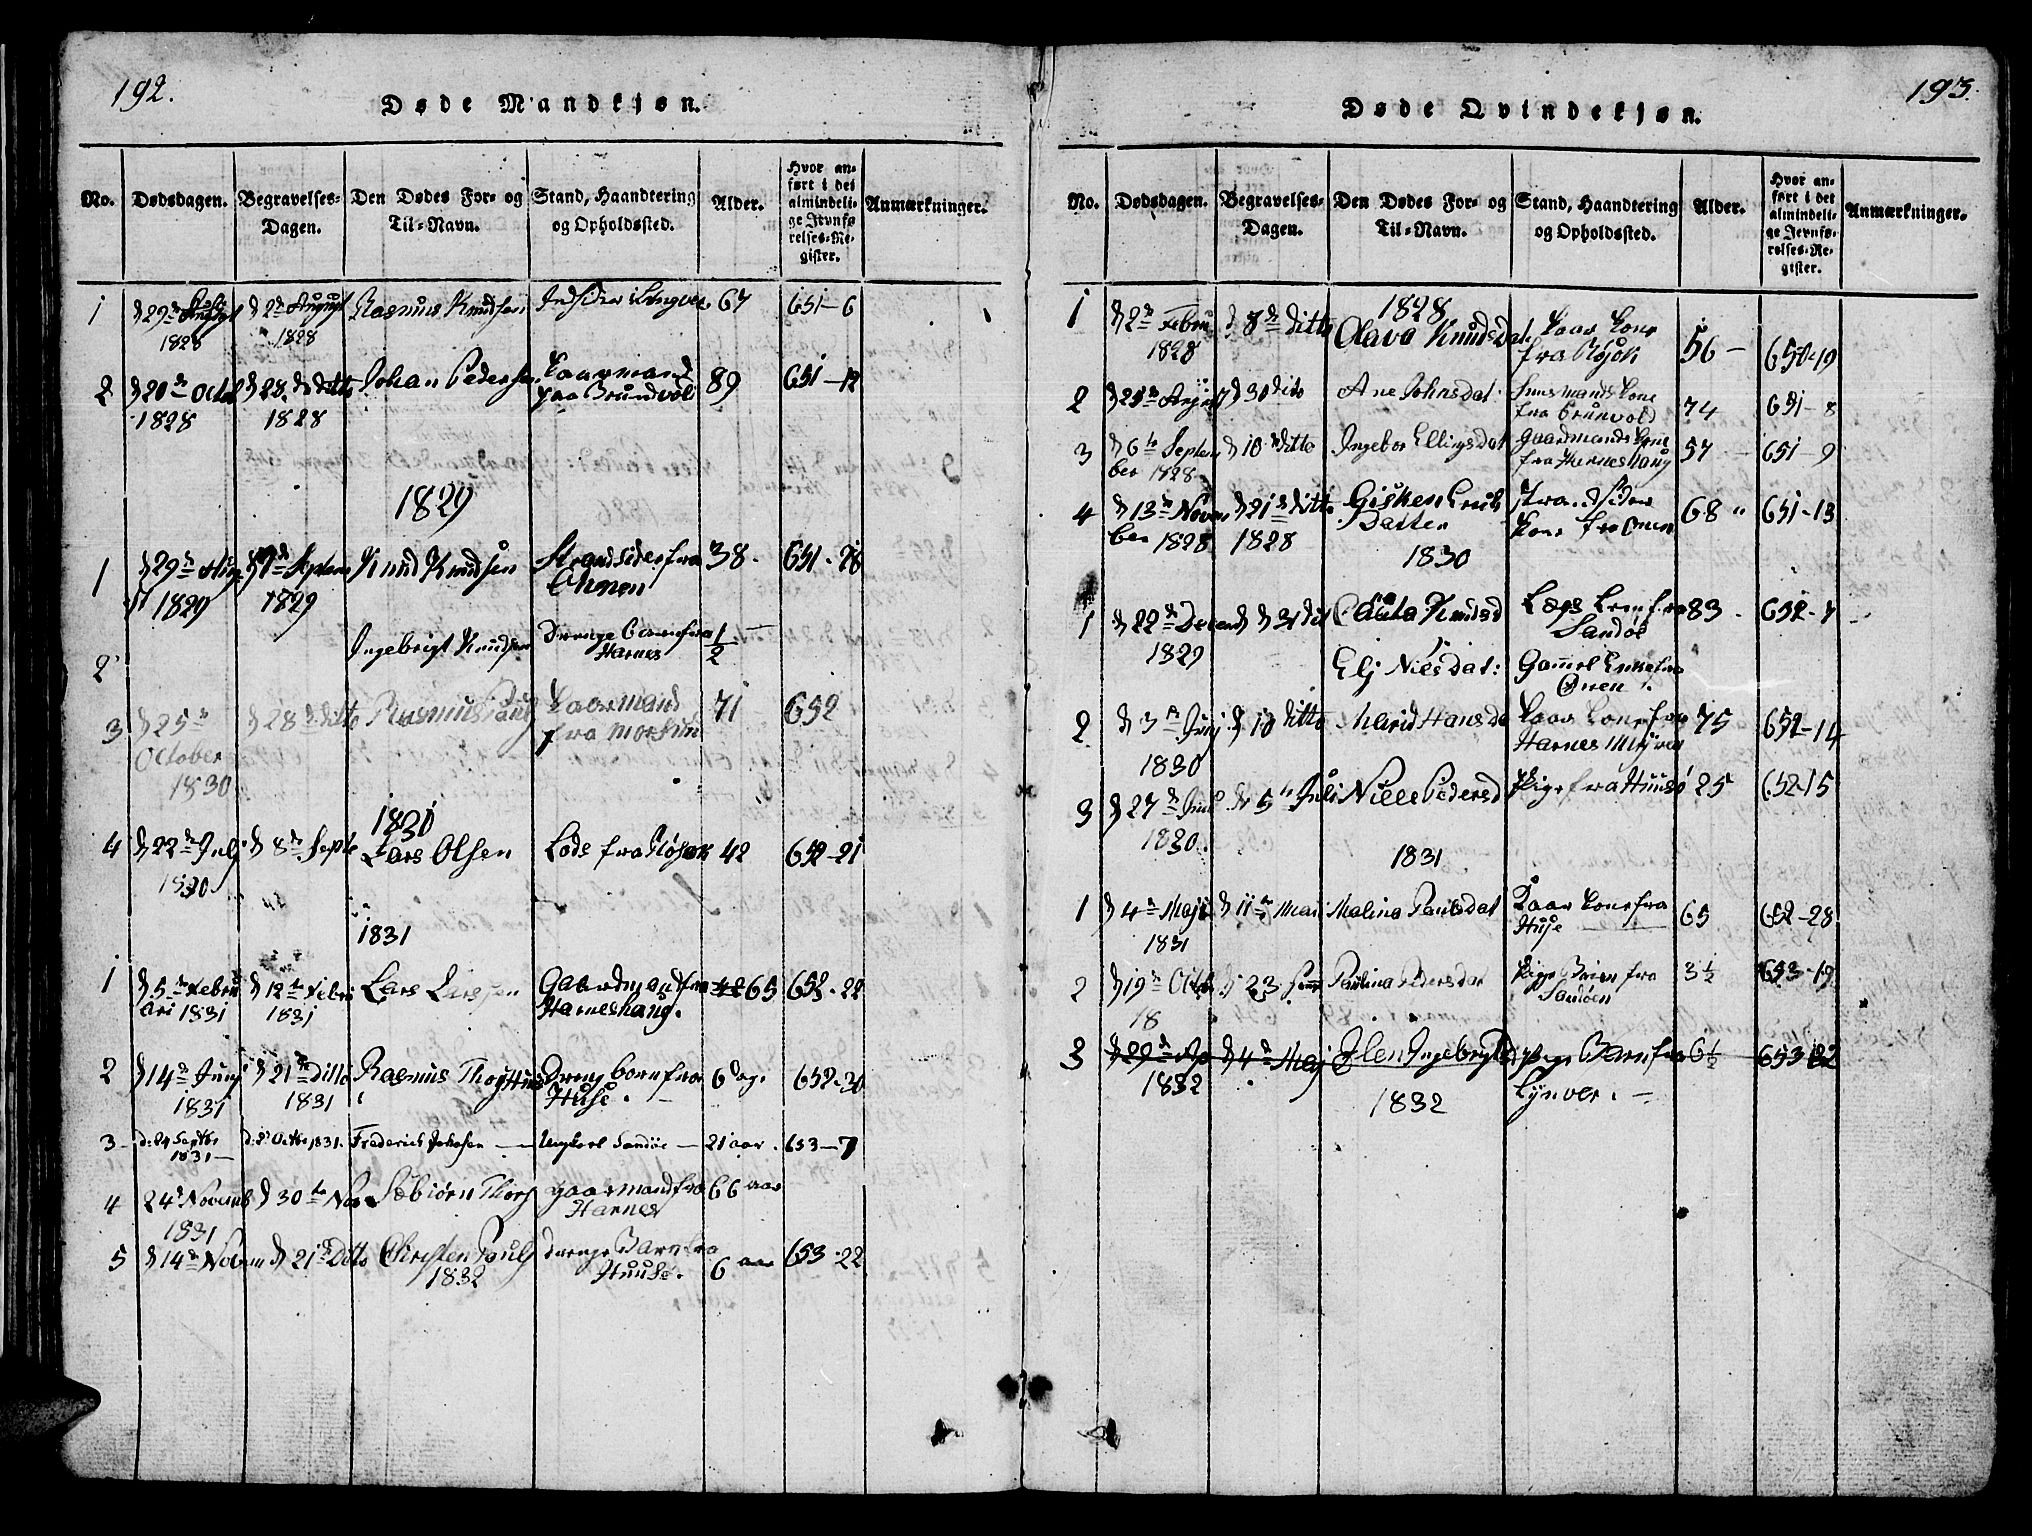 192.
Døde Mandkjøn.
No. Dødsdagen. Begravelses-Dagen. Den Dødes For- og Til-Navn. Stand, Haandtering og Opholdssted. Alder. Hvor anført i det almindelige Jevnførelses-Register. Anmærkninger.
1 d 29de August 1828 d 2de August 1828 Rasmus Knudsen Indsider i Lingver 67 651-6
2 d 20de Octob 1828 d 28de ditto 1828 Johan Pedersen Kaarmand paa Brundvol 89 651-12
1829
1 d 29de Aug 1829 d 7de Septem 1829 Knud Knudsen Strandsider fra Ohnen 38. 651-28
2 Ingebrigt Knudsen Drenge Barn fra Harnes 1/2
3 d 25de October 1830 d 28de ditto Rasmus Pauls Kaarmand fra 71 652
1830
4 d 22de July 1830 d 8de Septe Lars Olsen Lods fra Røsok 42 652-21
1831
1 d 5te Febru ari 1831 d 12te Febri 1831 Lars Larssen Gaardmand fra Harneshaug. 65 652-22
2 d 14de Juny 1831 d 21de ditto 1831 Rasmus Dreng born fra Huse. 6 dage 652-30
3 d: 24 Septbr 1831 d: 2 Octbr 1831. Frederich Ungkarl Sandøe 21 aar. 653-7
4 24de Novemb 1831 d 30te Nov Sæbiørn Thors gaarmand fra Harnes 66 aar
5 d 14de Novem d 21de Ditto Christen Pauls 1832 drenge Barn fra Huuse. 6 aar 653-22
193.
Døde Qvindekjøn.
No. Dødsdagen. Begravelses-Dagen. Den Dødes For- og Til-Navn. Stand, Haandtering og Opholdssted. Alder. Hvor anført i det almindelige Jevnførelses-Register. Anmærkninger.
1828
1 d 2de Febru 1828 d 8de ditto Olava Knudsdat. Kaar Kone fra Røsok 56 650-19
2 d 25de August d 30 dito Ane Johnsdat. Huusmands Kone fra Brunvold 74 651-8
3 d 6te Septem ber 1828 d 10de ditto Ingebor Ellingsdat gaardmands Kone fra Herneshaug 57 651-9
4 d 13de Novem ber 1828 d 21de ditto 1828 Gisken Datter Strandsider Kone fra Onen 68 651-13
1830
1 d 22de Decem 1829 d 31 dit Knudsd Lægs Lem fra Sandøe 83 652-7
Elj Nielsdat: Gammel Enke fra Onen
2 d 3de Juny 1830 d 10 ditto Marid Hansda Kaar Kone fra Harnes Myren 75 652-14
3 d 27de Juni 1830. d 5 Juli Nille Pedersd Pige fra Huuse 25 652-15
1831
1 d 4de Maji 1831 d 11te Maii Malina Paulsdat Kaar Kone fra Huse 65 652-28
2 d 19de Octb 18 d 23 Paulina Pedersdat Pige Barn fra Sandøen 3 1/2 653-19
3 d 29de Ap 1832 d 4de Maj Elen Ingebrigtsd Pige Barn fra Lynver. 6 1/2 653
1832